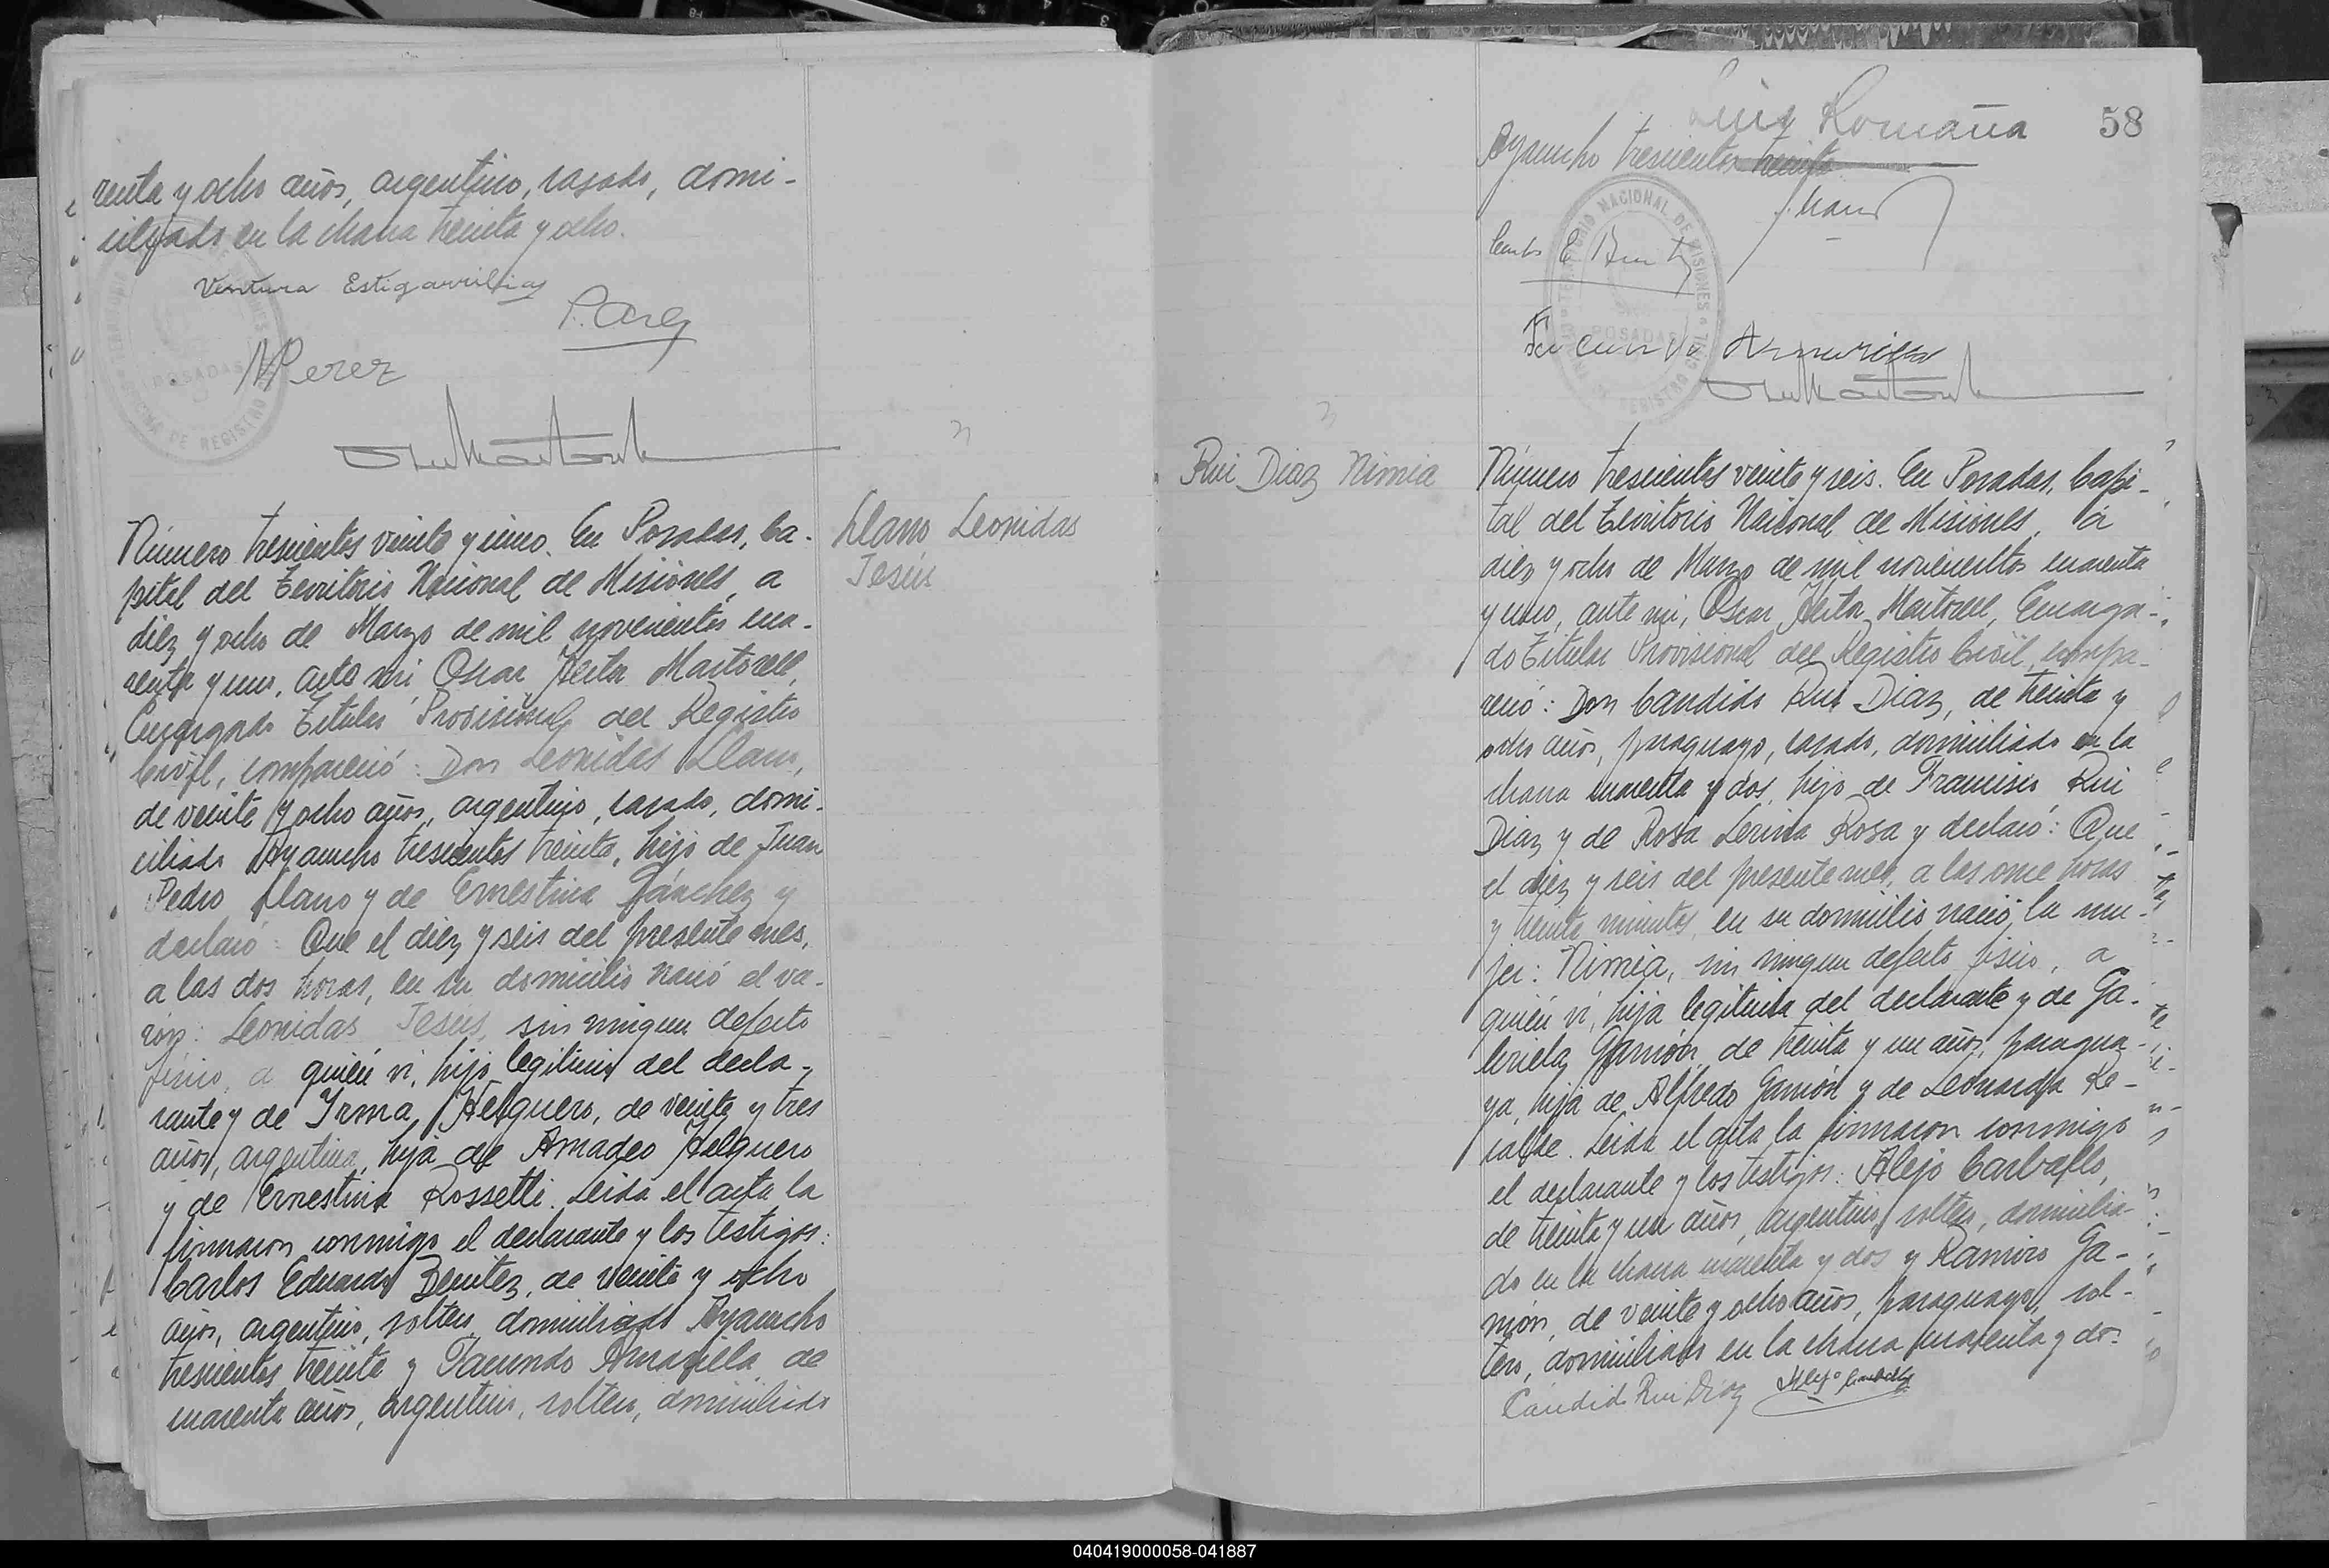 renta y ocho años, argentino, casado, domi-
ciliado en la chacra treinta y ocho.
Ventura Estigarribia
M Perez
Número trescientos veinte y cinco. En Posadas, Ca-
pital del Territorio Nacional de Misiones, a
diez y ocho de Marzo de mil novecientos cua-
renta y uno, ante mi Oscar Heitor Martorell,
Encargado Titular Provisional del Registro
Civil, compareció: Don Leonidas Llano,
de veinte y ocho años, argentino, casado, domi-
ciliado Ayacucho trescientos treinta, hijo de Juan
Pedro Llano y de Ernestina Sánchez y
declaró: Que el diez y seis del presente mes,
a las dos horas, en su domicilio nació el va-
rón: Leonidas Jesus, sin ningun defecto
fisico, a quién vi, hijo legitimo del decla-
rante y de Irma Helguero, de veinte y tres
años, argentina, hija de Amadeo Helguero
y de Ernestina Rossetti. Leida el acta la
firmaron conmigo el declarante y los testigos:
Carlos Eduardo Benitez, de veinte y ocho
años, argentino, soltero, domiciliado Ayacucho
trescientos treinta y Facundo Amarilla, de
cuarenta años, argentino, soltero, domiciliado
Llano Leonidas
Jesús
58
Luis Romaña
Ayacucho trescientos treinta
Carlos E Benitez
Facundo Amarilla
TERRITORIO NACIONAL DE MISIONES
POSADAS
Rui Diaz Nimia
Número trescientos veinte y seis. En Posadas, Capi-
tal del Territorio Nacional de Misiones, a
diez y ocho de Marzo de mil novecientos cuarenta
y uno, ante mi, Oscar Heitor Martorell, Encarga-
do Titular Provisional del Registro Civil, compa-
reció: Don Candido Rui Diaz, de treinta y
ocho años, paraguayo, casado, domiciliado en la
chacra cuarenta y dos, hijo de Francisco Rui
Diaz y de Rosa Rosa y declaró: Que
el diez y seis del presente mes, a las once horas
y treinta minutos, en su domicilio nació la mu-
jer: Nimia, sin ningun defecto fisico, a
quién vi, hija legitima del declarante y de Ga-
briela Gamón, de treinta y un años, paragua-
ya, hija de Alfredo Gamón y de Leonarda Re-
calde. Leida el acta la firmaron conmigo
el declarante y los testigos: Alejo Carballo,
de treinta y un años, argentino, soltero, domicilia-
do en la chacra cuarenta y dos y Ramiro Ga-
món, de veinte y ocho años, paraguayo, sol-
tero, domiciliado en la chacra cuarenta y dos
Candido Rui Diaz Alejo Carballo
040419000058-041887